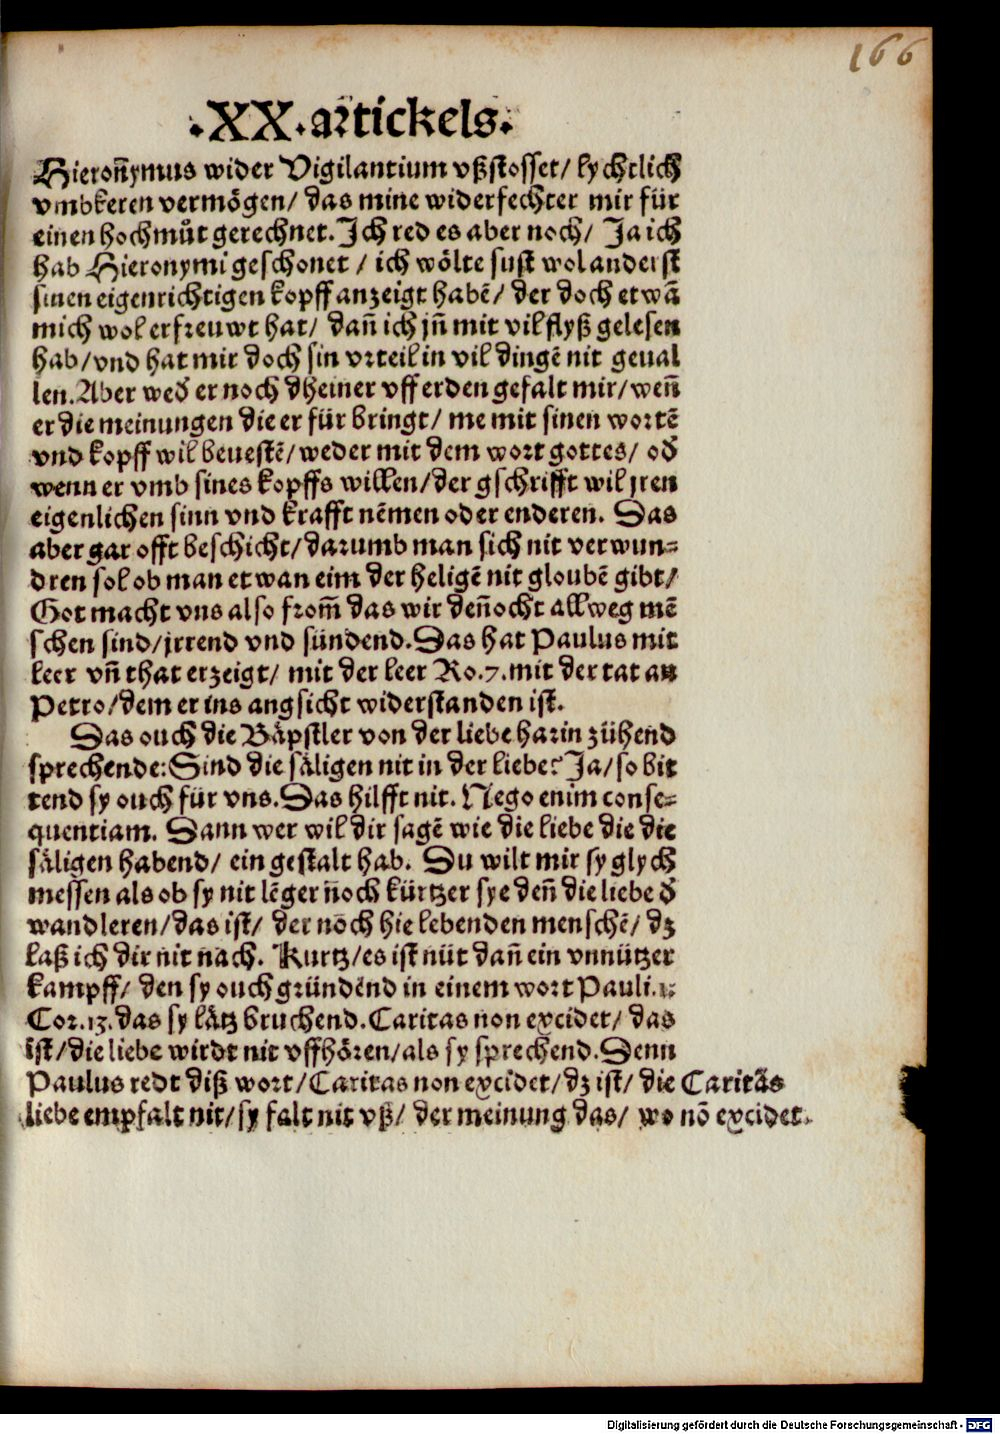 166
.XX.artickels.
Hieronỹmus wider Vigilantium vßstosset/ lychtlich
vmbkeren vermögen/ das mine widerfechter mir für
einen hochmůt gerechnet. Ich red es aber noch/ Ja ich
hab Hieronymi geschonet / ich wölte sust wol anderst
sinen eigenrichtigen kopff anzeigt habẽ/ der doch etwã
mich wol erfreuwt hat/ dañ ich jñ mit vil flyß gelesen
hab/vnd hat mir doch sin vrteil in vil dingẽ nit geual
len. Aber wed̄ er noch dheiner vff erden gefalt mir/weñ
er die meinungen die er für bringt/ me mit sinen wortẽ
vnd kopff wil beuestẽ/weder mit dem wort gottes/ od̄
wenn er vmb sines kopffs willen/der gschrifft wil jren
eigenlichen sinn vnd krafft nẽmen oder enderen. Das
aber gar offt beschicht/darumb man sich nit verwun⸗
dren sol ob man etwan eim der heligẽ nit gloubẽ gibt/
Got macht vns also from̃ das wir deñocht allweg mẽ
schen sind/jrrend vnd sündend. Das hat Paulus mit
leer vñ that erzeigt/ mit der leer Ro.7. mit der tat an
Petro/dem er ins angsicht widerstanden ist.
Das ouch die Bäpstler von der liebe harin zühend
sprechende: Sind die säligen nit in der liebe? Ja/so bit
tend sy ouch für vns. Das hilfft nit. Nego enim conse⸗
quentiam. Dann wer wil dir sagẽ wie die liebe die die
säligen habend/ ein gestalt hab. Du wilt mir sy glych
messen als ob sy nit lẽger noch kürtzer sye deñ die liebe d̄
wandleren/das ist/ der noch hie lebenden menschẽ/ dz
laß ich dir nit nach. Kurtz/es ist nüt dañ ein vnnützer
kampff/ den sy ouch gründẽnd in einem wort Pauli.1.
Cor.13. das sy lätz bruchend. Caritas non excidet/ das
ist/die liebe wirdt nit vffhören/als sy sprechend. Denn
Paulus redt diß wort/Caritas non excidet/dz ist/ die Caritãs
liebe empfalt nit/sy falt nit vß/ der meinung das/ wo nõ excidet.
Digitalisierung gefördert durch die Deutsche Forschungsgemeinschaft - DFG